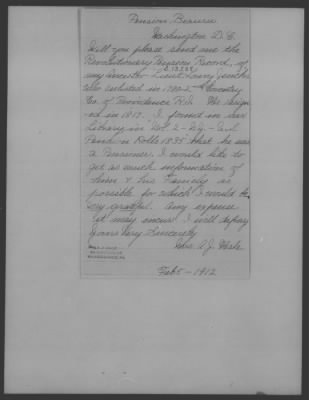 Pension Bureau
Washington D.C.
Will you please send me the
Revolutionary Pension Record, of
my Ancestor Lieut.
who enlisted in
Co. of Providence R.I. He resign
-ed in 1819. I found in our
Library in Vol. 2
Pension Rolls 1835 that he was
a Pensioner. I would like to
get as much information of
him & his Family as
possible for which I would be
very grateful. Any expense
it may incur I will defray
Yours Very Sincerely
Mrs A.J.
Feb 5 - 1912